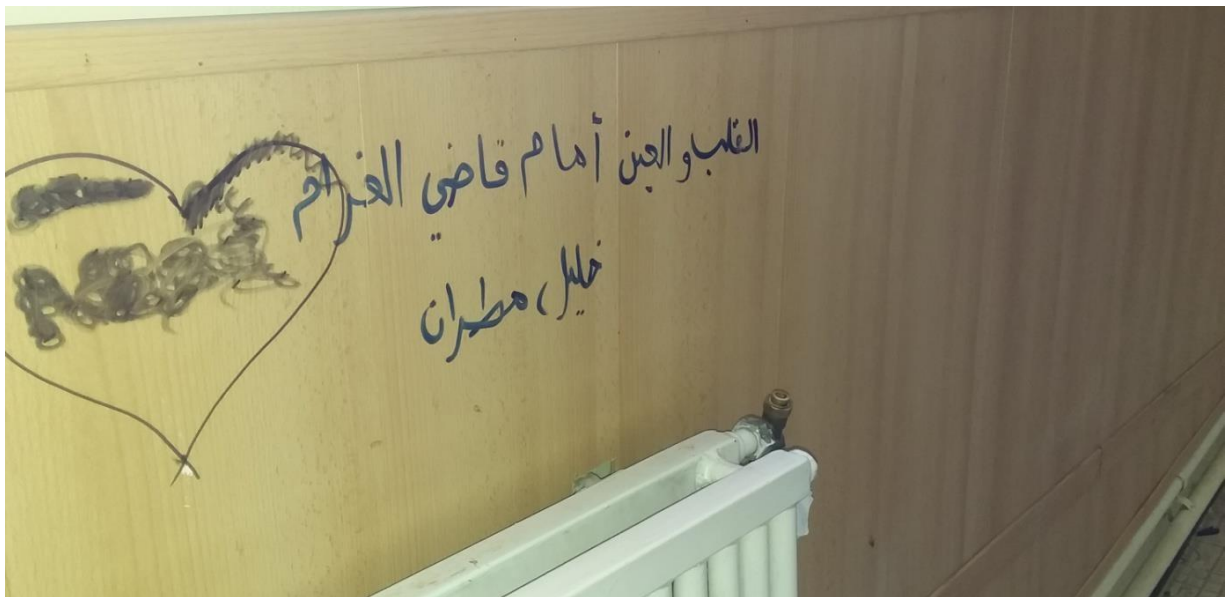 القلب والعين أمام قاضي الغرام
خليل مطران